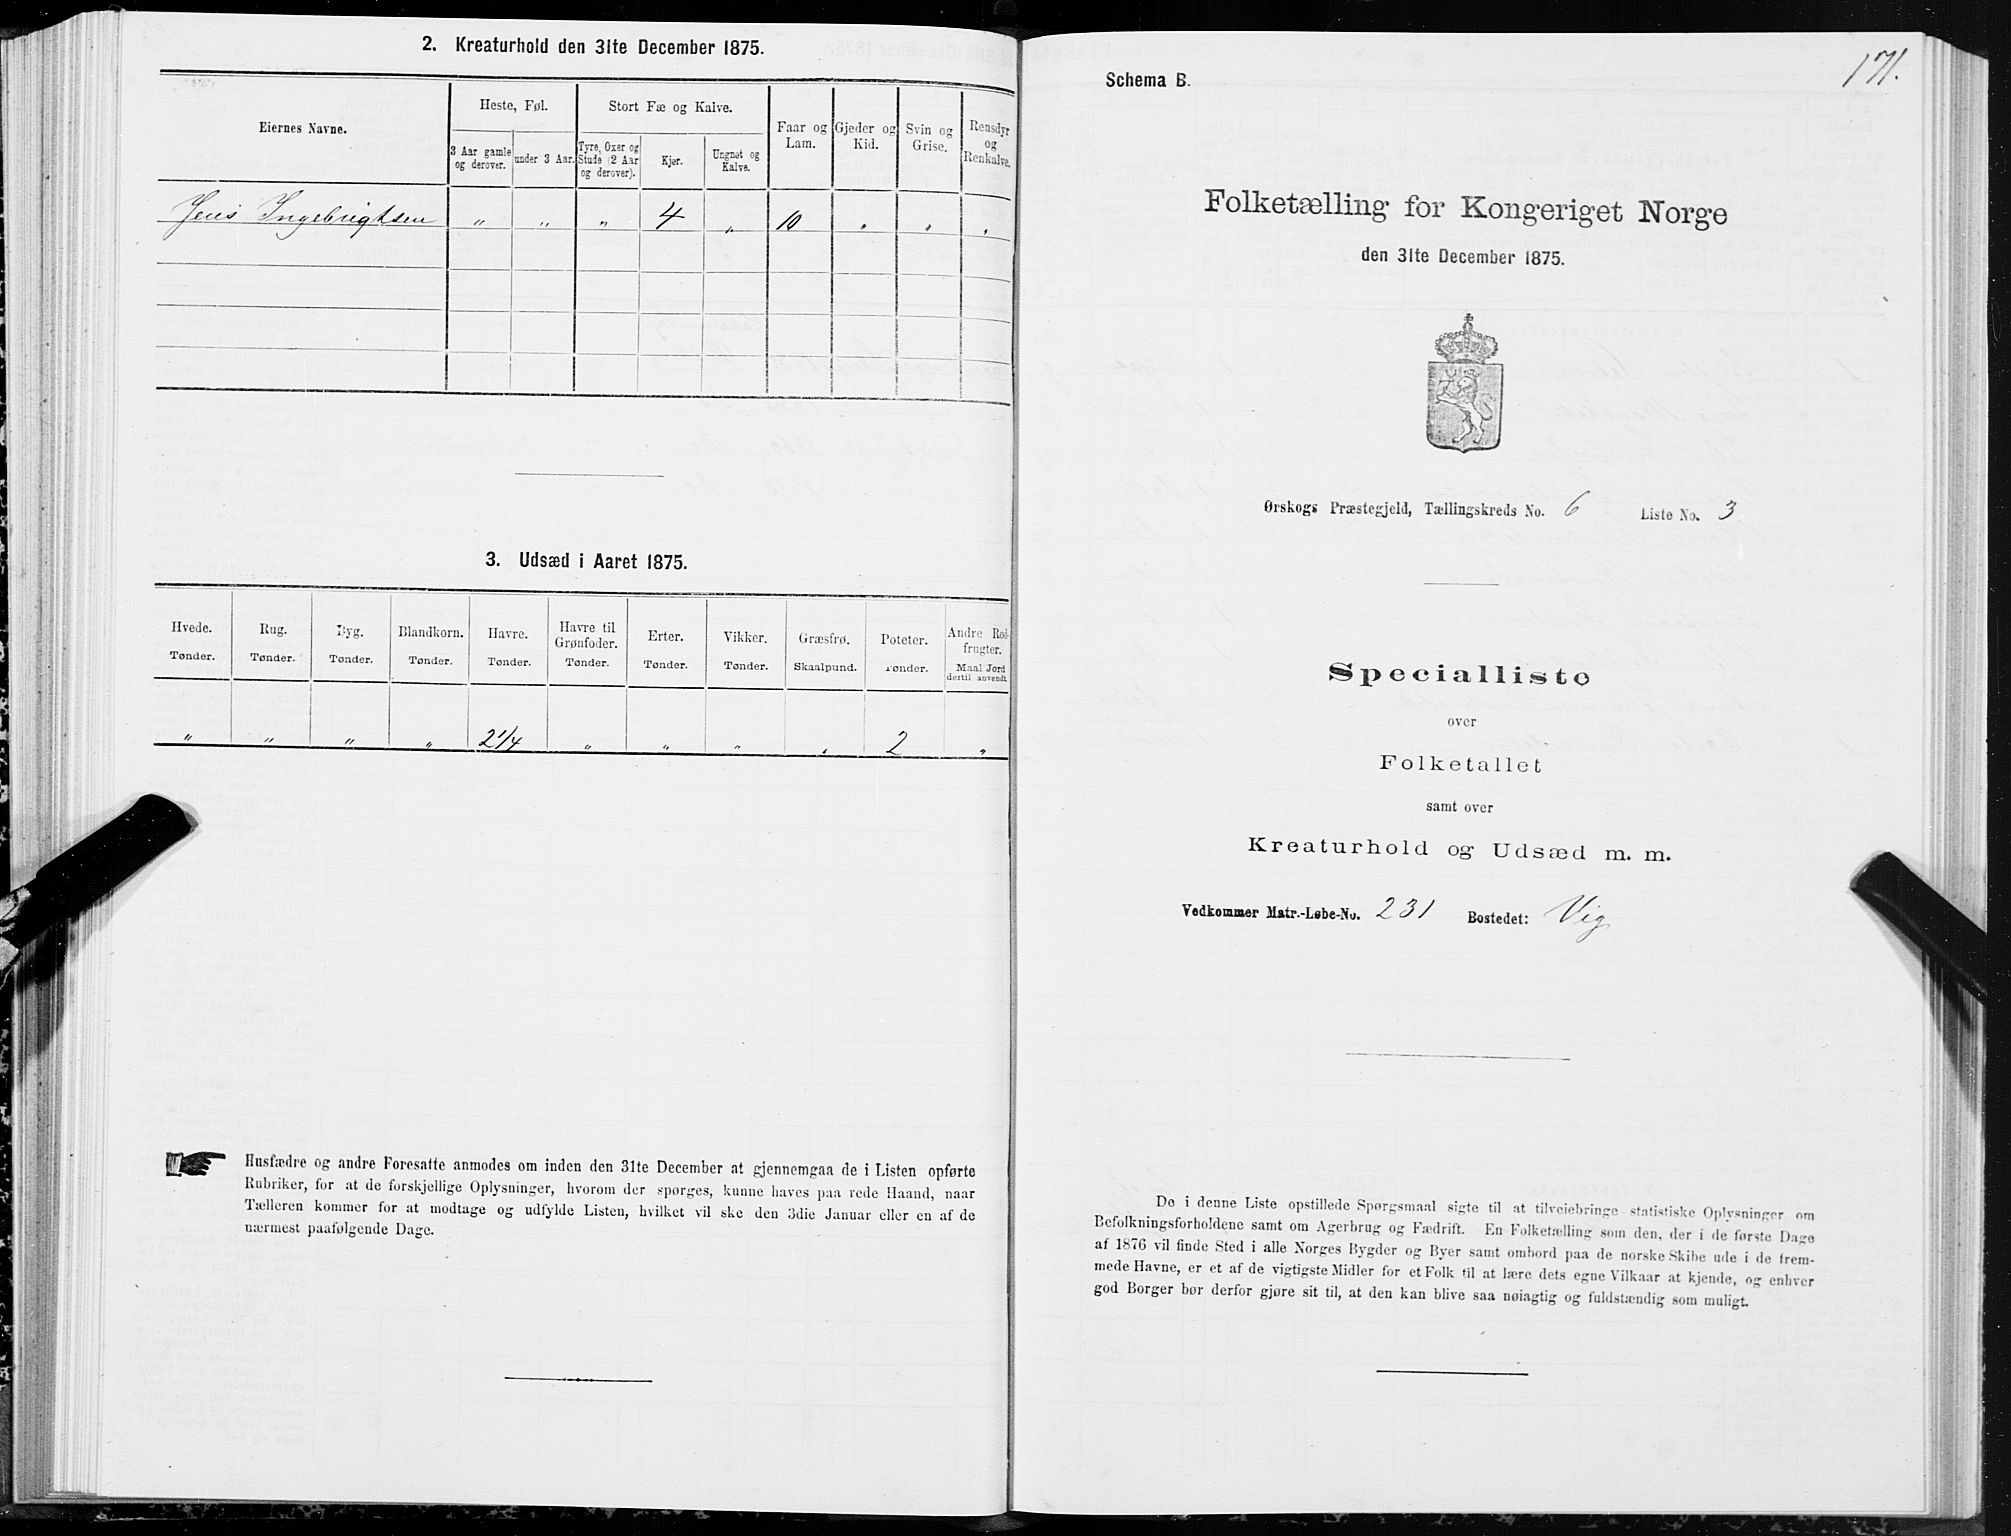 2. Kreaturhold den 31te December 1875.
Eiernes Navne.
Heste, Føl.
Stort Fæ og Kalve.
Faar og Lam.
Gjeder og Kid.
Svin og Grise.
Rensdyr og Renkalve.
3 Aar gamle og derover.
under 3 Aar.
Tyre, Oxer og Stude (2 Aar og derover).
Kjør.
Ungnøt og Kalve.
Jens Ingebrigtsen " " " 4 " 10 " " "
3. Udsæd i Aaret 1875.
Hvede. Rug. Byg. Blandkorn. Havre. Havre til Grønfoder. Erter. Vikker. Græsfrø. Poteter. Andre Rodfrugter.
Tønder. Tønder. Tønder. Tønder. Tønder. Tønder. Tønder. Tønder. Skaalpund. Tønder. Maal Jord dertil anvendt.
" " " " 2 1/4 " " " " 2 "
Husfædre og andre Foresatte anmodes om inden den 31te December at gjennemgaa de i Listen opførte
Rubriker, for at de forskjellige Oplysninger, hvorom der spørges, kunne haves paa rede Haand, naar
Tælleren kommer for at modtage og udfylde Listen, hvilket vil ske den 3die Januar eller en af de
nærmest paafølgende Dage.
171.
Schema B.
Folketælling for Kongeriget Norge
den 31te December 1875.
Ørskogs Præstegjeld, Tællingskreds No. 6 Liste No. 3
Specialliste
over
Folketallet
samt over
Kreaturhold og Udsæd m. m.
Vedkommer Matr.-Løbe-No. 231 Bostedet: Vig
De i denne Liste opstillede Spørgsmaal sigte til at tilveiebringe statistiske Oplysninger om
Befolkningsforholdene samt om Agerbrug og Fædrift. En Folketælling som den, der i de første Dage
af 1876 vil finde Sted i alle Norges Bygder og Byer samt ombord paa de norske Skibe ude i de frem-
mede Havne, er et af de vigtigste Midler for et Folk til at lære dets egne Vilkaar at kjende, og enhver
god Borger bør derfor gjøre sit til, at den kan blive saa nøiagtig og fuldstændig som muligt.